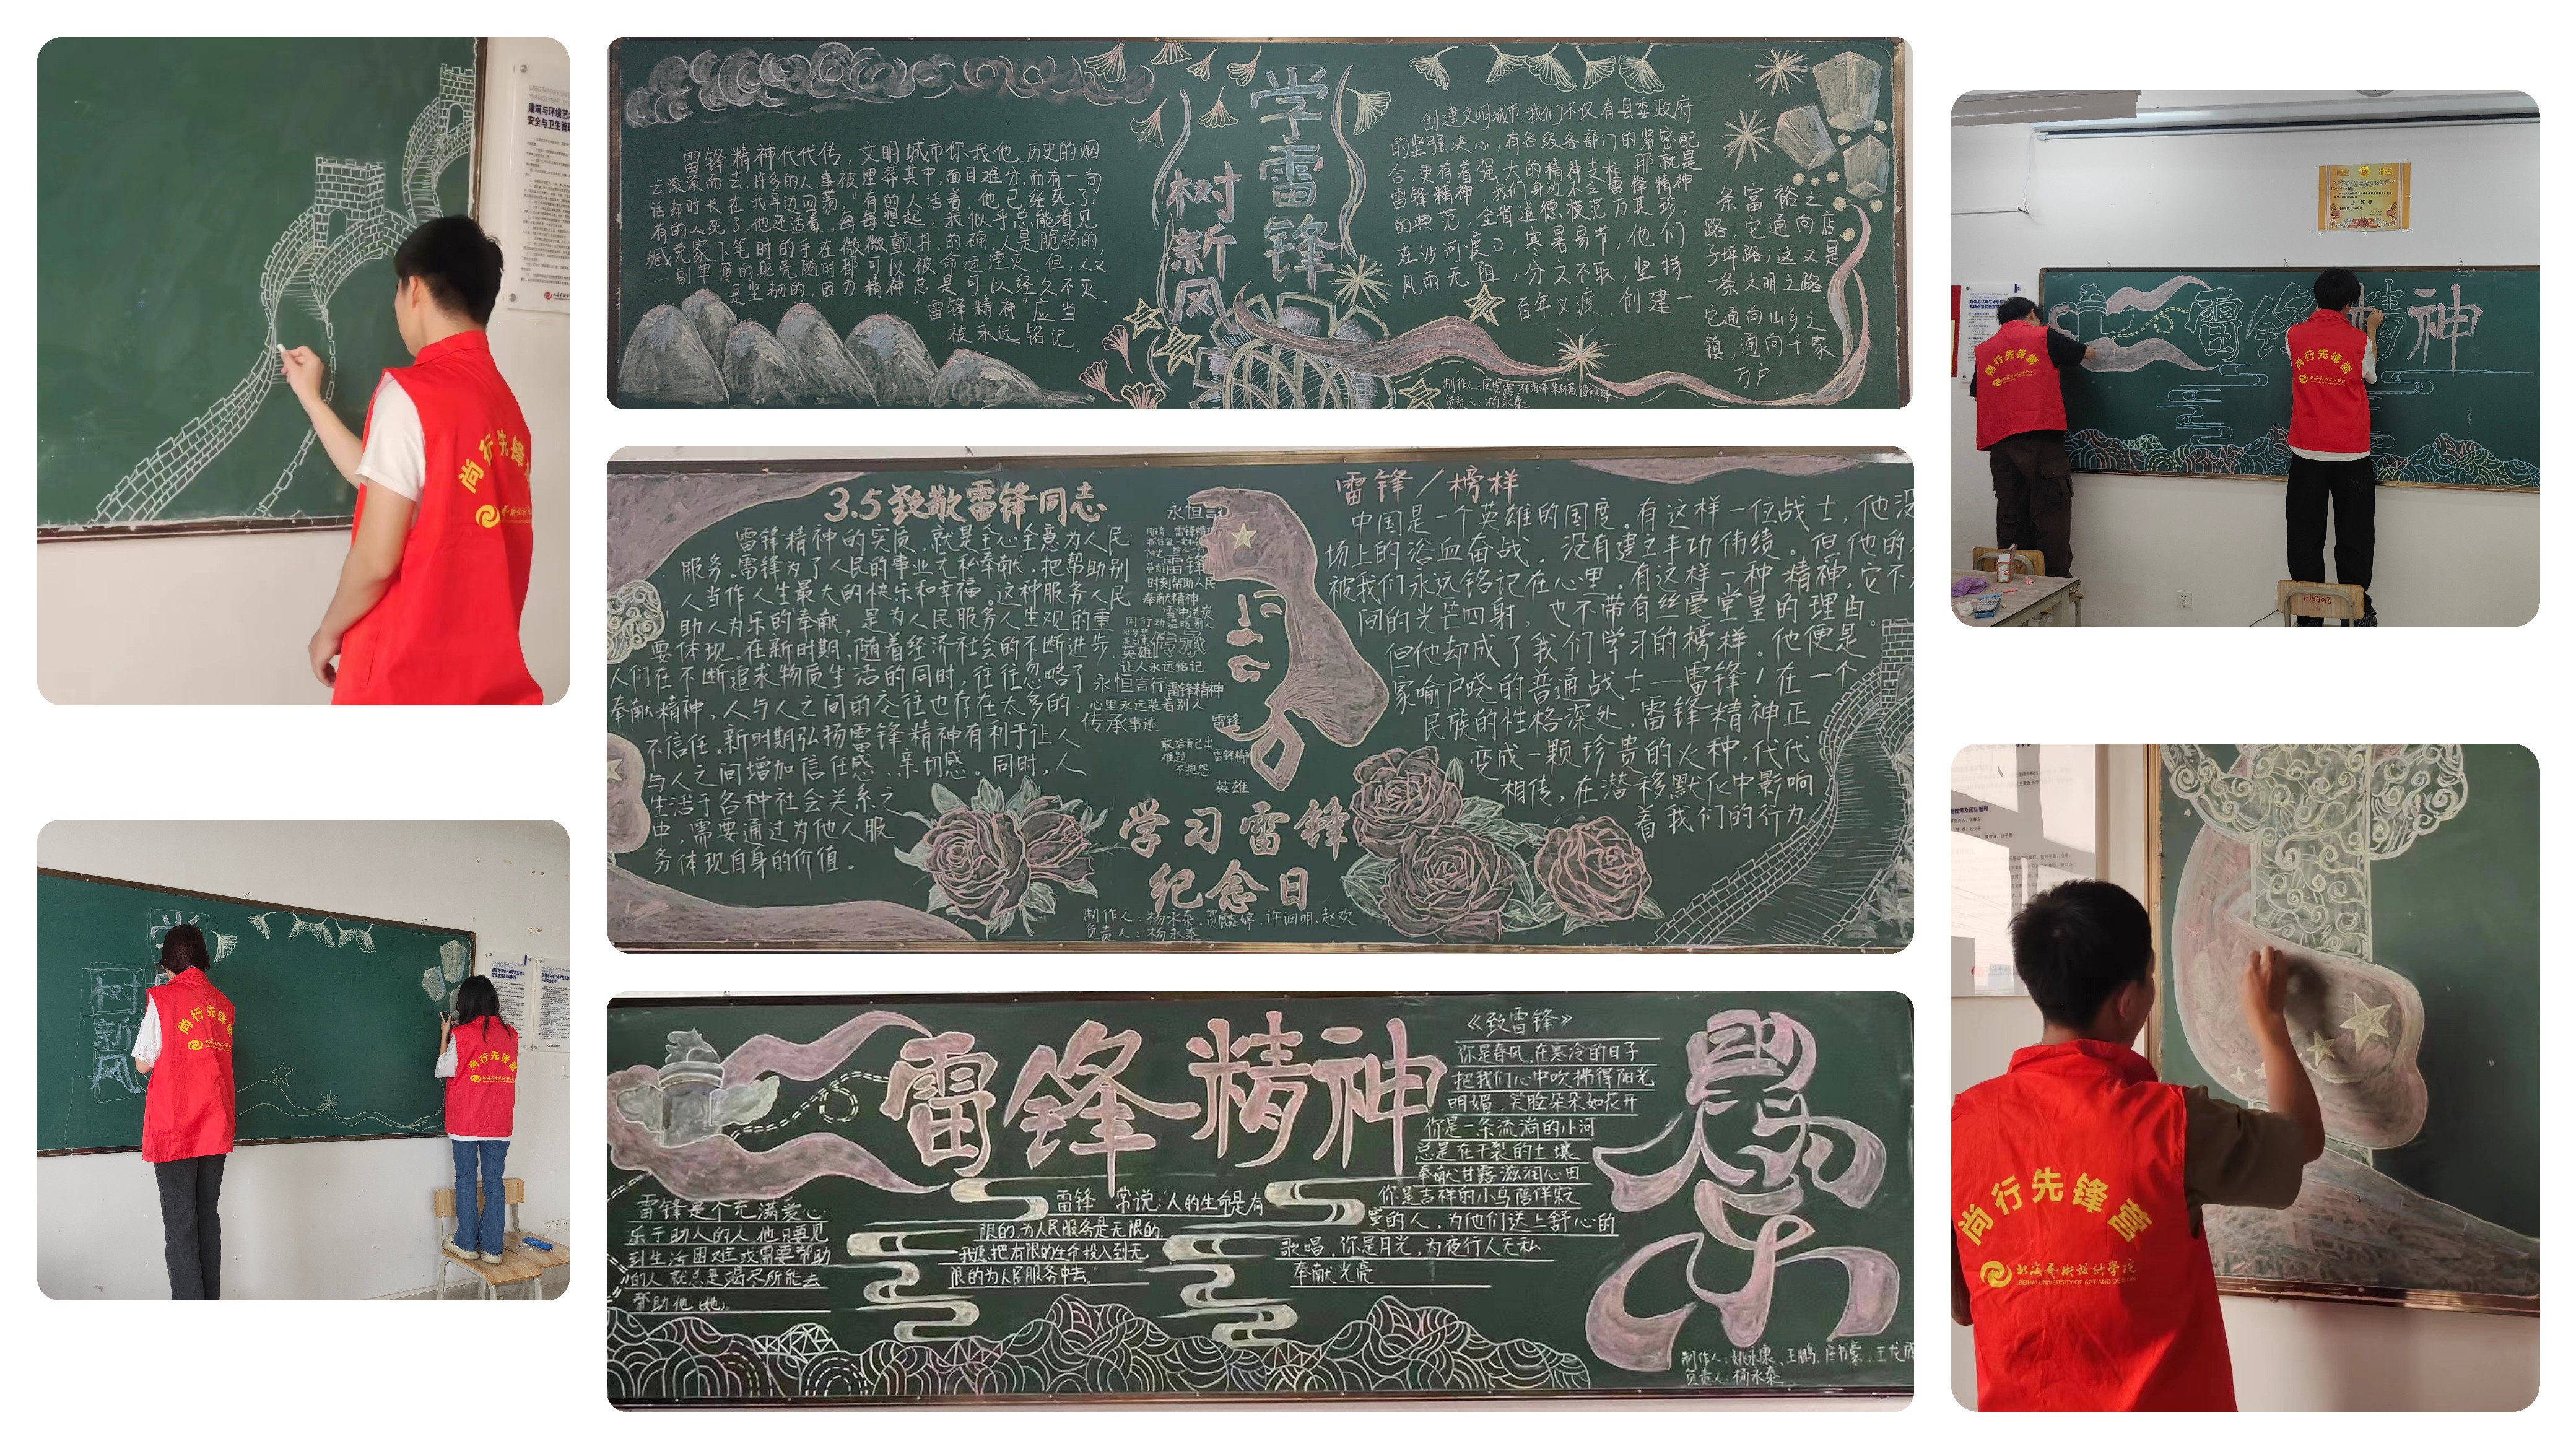 建筑与环境艺
安全与卫生管
尚行先锋
学雷锋
树新风
雷锋精神代代传，文明城市你我他，历史的烟
云滚滚而去，许多的人事被埋葬其中，面目难分，而有一句
话却时长在我耳边回荡，“有的人活着，他已经死了；
有的人死了，他还活着”每每想起，我似乎总能看见
臧克家下笔时的手在微微颤抖，的确，人是脆弱的，
一副单薄的躯壳随时都可以被命运湮灭，但，人又
是坚韧的，因为精神总是可以经久不灭，
“雷锋精神”应当
被永远铭记．
创建文明城市，我们不仅有县委政府
的坚强决心，有各级各部门的紧密配
合，更有着强大的精神支柱，那就是
雷锋精神，我们身边不乏雷锋精神
的典范，全省道德模范万其珍，
在沙河渡口，寒暑易节，他们
风雨无阻，分文不取，坚持
百年义渡，创建一
条富裕之
路，它通向店
子坪路；这又是
一条文明之路
它通向山乡之
镇，通向千家
万户
负责人：杨永泰
雷锋精神
尚行先锋营
尚行先锋营
3.5致敬雷锋同志
雷锋精神的实质，就是全心全意为人民
服务。雷锋为了人民的事业无私奉献，把帮助别
人当作人生最大的快乐和幸福。这种服务人民
助人为乐的奉献，是为人民服务人生观的重
要体现。在新时期，随着经济社会的不断进步．
人们在不断追求物质生活的同时，往往忽略了
奉献精神、人与人之间的交往也存在太多的
不信任．新时期弘扬雷锋精神有利于让人
与人之间增加信任感、亲切感。同时，人
生活于各种社会关系之
中，需要通过为他人服
务体现自身的价值。
永恒言
雷锋
时刻帮助人民
奉献精神
雪中送炭
用行动温暖别人
英雄传承
让人永远铭记
永恒言行雷锋精神
心里永远装着别人
传承事迹
雷锋
敢给自己出
难题
雷锋精神
不抱怨
英雄
学习雷锋
纪念日
负责人：杨永泰
雷锋/榜样
中国是一个英雄的国度．有这样一位战士，他没
场上的浴血奋战，没有建立丰功伟绩。但他的
被我们永远铭记在心里．有这样一种精神，它不
间的光芒四射，也不带有丝毫堂皇的理由。
但他却成了我们学习的榜样。他便是
家喻户晓的普通战士—雷锋/在一个
民族的性格深处．雷锋精神正
变成一颗珍贵的火种，代代
相传，在潜移默化中影响
着我们的行为．
树新风
尚行先锋营
尚行先锋营
雷锋精神
雷锋是个充满爱心
乐于助人的人，他只要见
到生活困难或需要帮助
的人就总是竭尽所能去
帮助他（她）．
雷锋常说：“人的生命是有
限的，为人民服务是无限的，
我愿把有限的生命投入到无
限的为人民服务中去。”
《致雷锋》
你是春风，在寒冷的日子
把我们心中吹拂得阳光
明媚．笑脸朵朵如花开
你是一条流淌的小河
总是在干裂的土壤
奉献甘露滋润心田
你是吉祥的小鸟陪伴寂
寞的人，为他们送上舒心的
歌唱，你是月光，为夜行人无私
奉献光亮
负责人：杨永泰
尚行先锋营
北海艺术设计学院
BEIHAI UNIVERSITY OF ART AND DESIGN